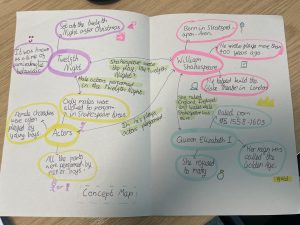 Set on the twelfth
Night after Christmas
It was known
as a time of
Twelfth
Night
Shakespeare
wrote
the play
Night?
Male actors performed
in the Twelfth Night
Only males were
allowed to perform
in Shakespeare times
Female characters
were often
played by
young boys
Actors
All the parts
were performed by
men or boys
In his plays
actors performed
Concept Map
Born in Stratford
upon Avon
He wrote plays more than
400 years ago
William
Shakespeare
He helped build the
Globe Theater in London
She ruled
England
when
Shakespeare
was
Ruled from
1558-1603
Queen Elizabeth I
She refused
to marry
Her reign was
called the
Golden Age